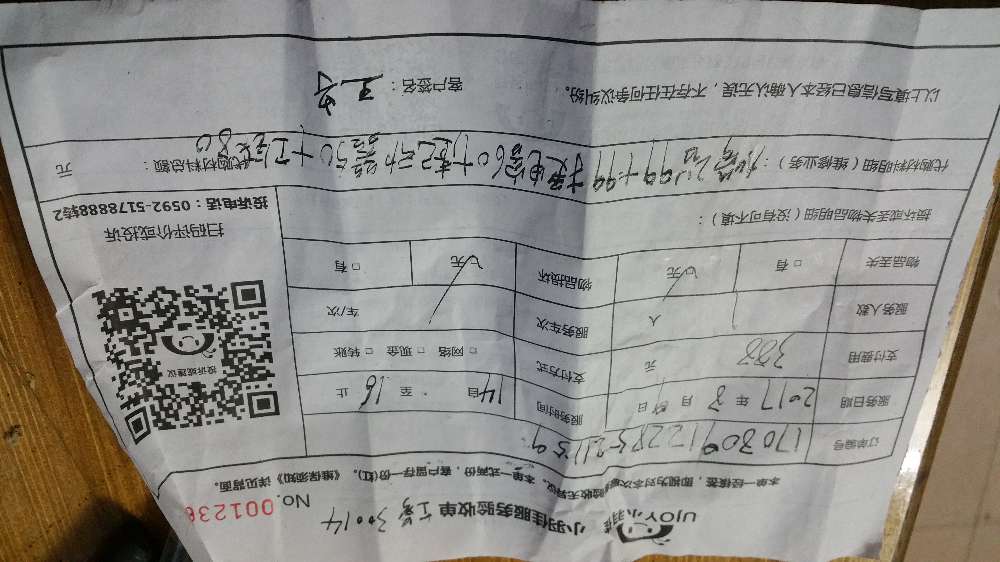 UJOY小羽佳
小羽佳服务验收单 工号 30014 No. 001236
本单一经核签，即视为对本次服务验收无异议。本单一式两份，客户留存一份(红)。《维保须知》详见背面。
订单编号
服务日期 2017 年 8 月 日 服务时间 14 自 至 16 止
支付费用 388 元 支付方式 □ 网络 □ 现金 □ 转账
服务人数 1 人 服务车次 车/次
物品丢失 □ 有 □ 无 物品损坏 □ 无 □ 有
投诉或建议
扫码评价或投诉
投诉电话：0592-5178888转2
损坏或丢失物品明细（没有可不填）：
代购材料明细（维修业务）： 99+99 换电容60+ 50+ 80 代购材料总额： 元
以上填写信息已经本人确认无误，不存在任何争议纠纷。 客户签名：